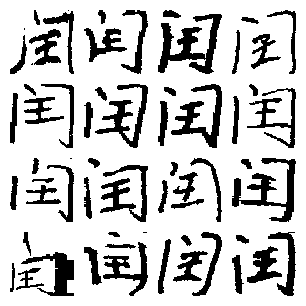 闰闰闰闰
闰闰闰闰
闰闰闰闰
闰闰闰闰